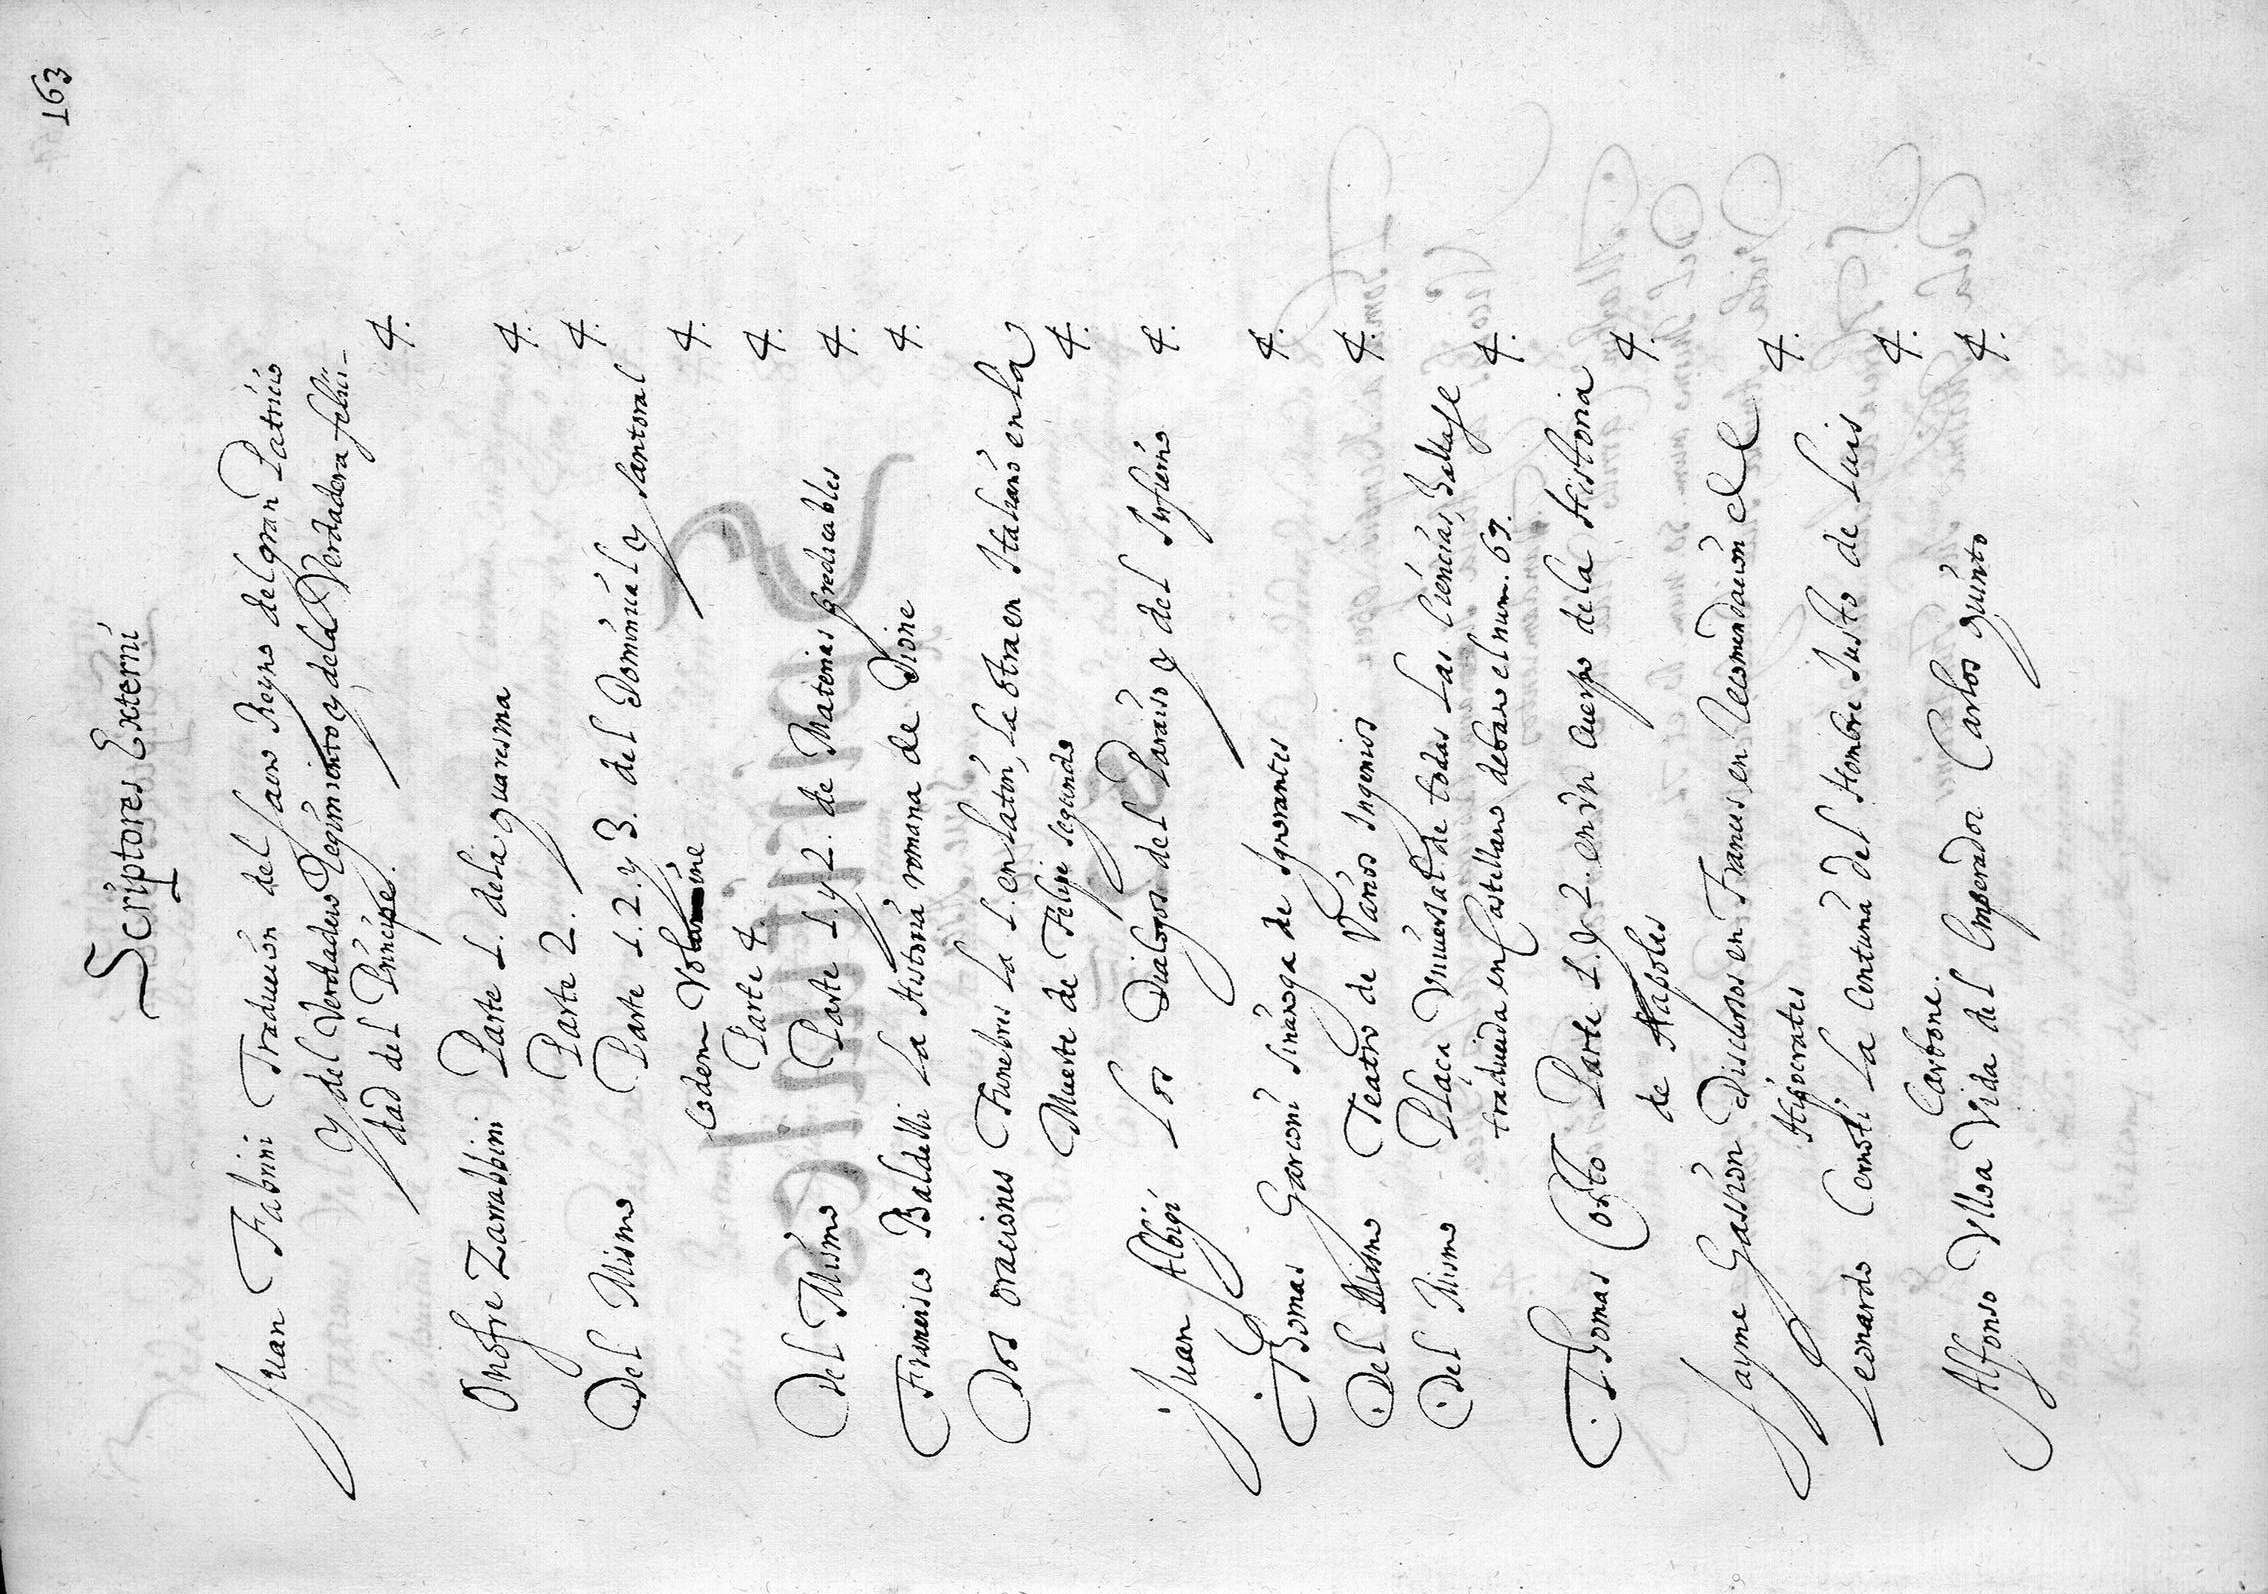 163
Scriptores Externi
Juan Fabrini Traducion del sacro Reyno del gran Patricio
y del Verdadero Regimiento, y dela Verdadera felici-
dad del Principe. 4.
Onofre Zarrabbini Parte 1. dela quaresma 4.
Parte 2. 4.
Del Mismo Parte 1. 2. y 3. del Dominical y Santoral
eodem Volumine 4.
Parte 4. 4.
Del Mismo Parte 1. y 2. de Materias predicables 4.
Francisco Baldelli La Historia romana de Dione 4.
Dos oraciones Funebres La 1. en Latin, La otra en Italiano en la
Muerte de Felipe segundo 4.
Juan Albigi Los Dialogos del Paraiso y del Infierno 4.
Thomas Garconi Sinagoga de Ignorantes 4.
Del Mismo Teatro de Varios Ingenios 4.
Del Mismo Plaça Universal de todas Las Ciencias, Hallase
traducida en Castellano debaxo el num. 69. 4.
Thomas Costo Parte 1. y 2. en un cuerpo dela Historia
de Napoles 4.
Jayme Gassion Discursos en Frances en Recomendacion de
Hipocrates 4.
Leonardo Cernoti La Centuria del Hombre Justo de Luis
Carbone. 4.
Alfonso Ulloa Vida del Emperador Carlos quinto 4.